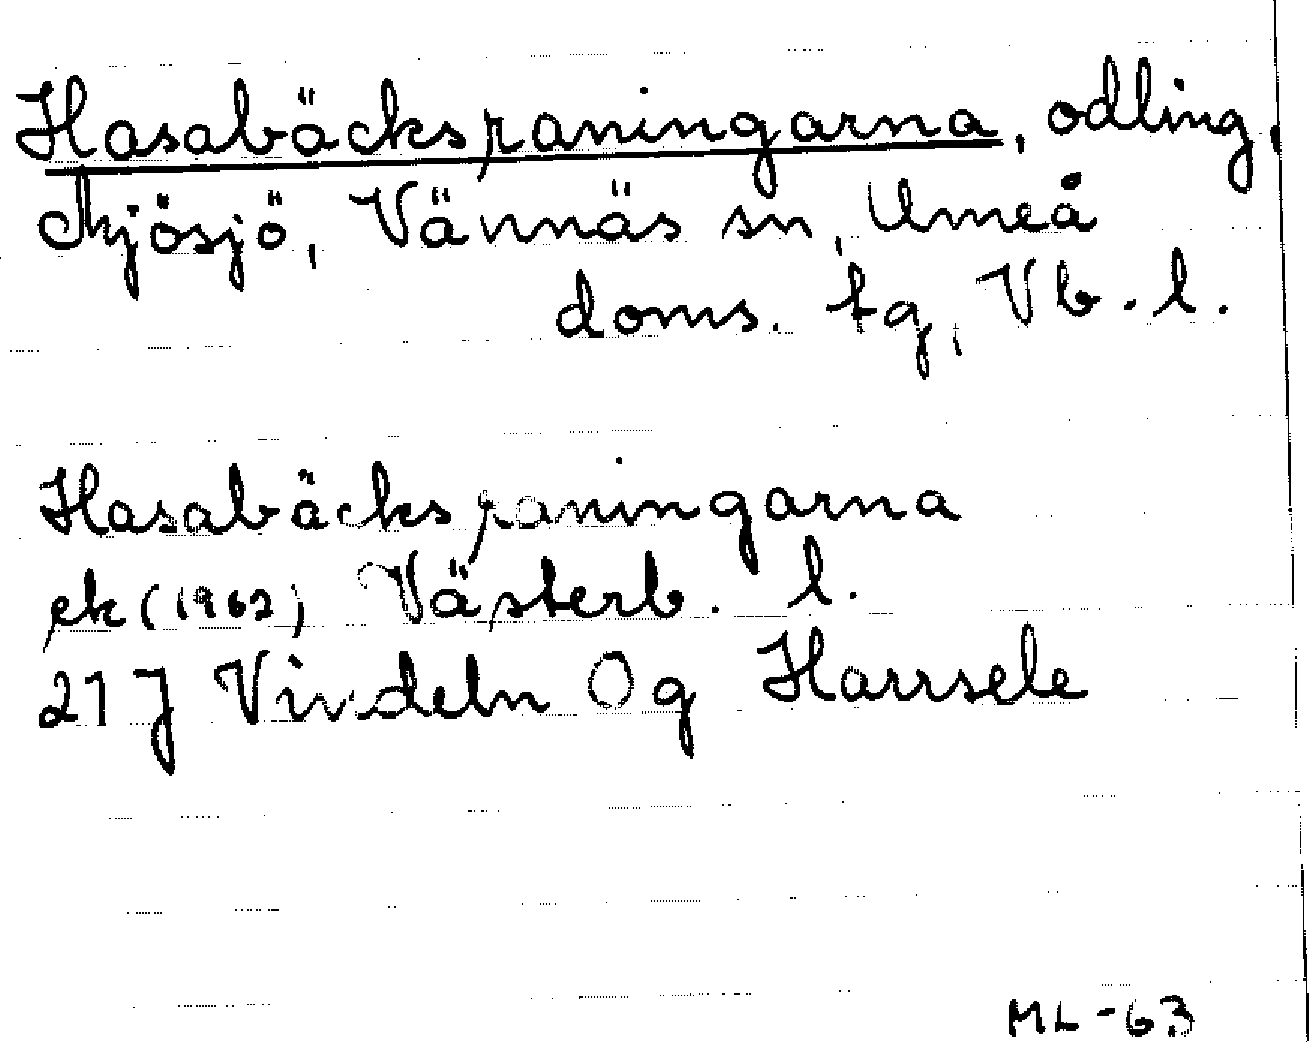 Hasabäcksraningarna, odling,
Mjösjö, Vännäs sn, Umeå
doms. tg, Vb. l.
Hasabäcksraningarna
ek (1962) Västerb. l.
21 J Vindeln 0g Harrsele
ML-63